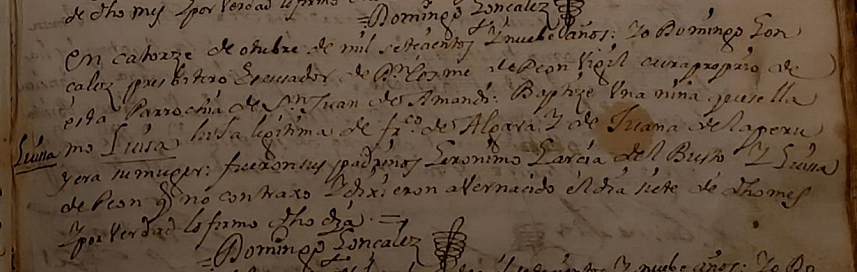 de dho mes y por verdad lo firmo
=Domingo Goncalez
en catorze de otubre de mil setecientos y nuebe años: yo Domingo Gon
calez presbitero Escusador de Dn Cosme de Peon Vigil cura proprio de
esta Parrochia de Sn Juan de Amandi: Baptize Una niña que se lla
mo Luisa hija legitima de frco de Algara y de Juana de la peru
Luisa
yera su muger: fueron sus padrinos Geronimo Garcia del Busto y Luisa
de Peon q no contraxo y dixeron aver nacido el dia siete de dho mes
y por verdad lo firmo dho dia =
=Domingo Goncalez
y nuebe años: yo Do